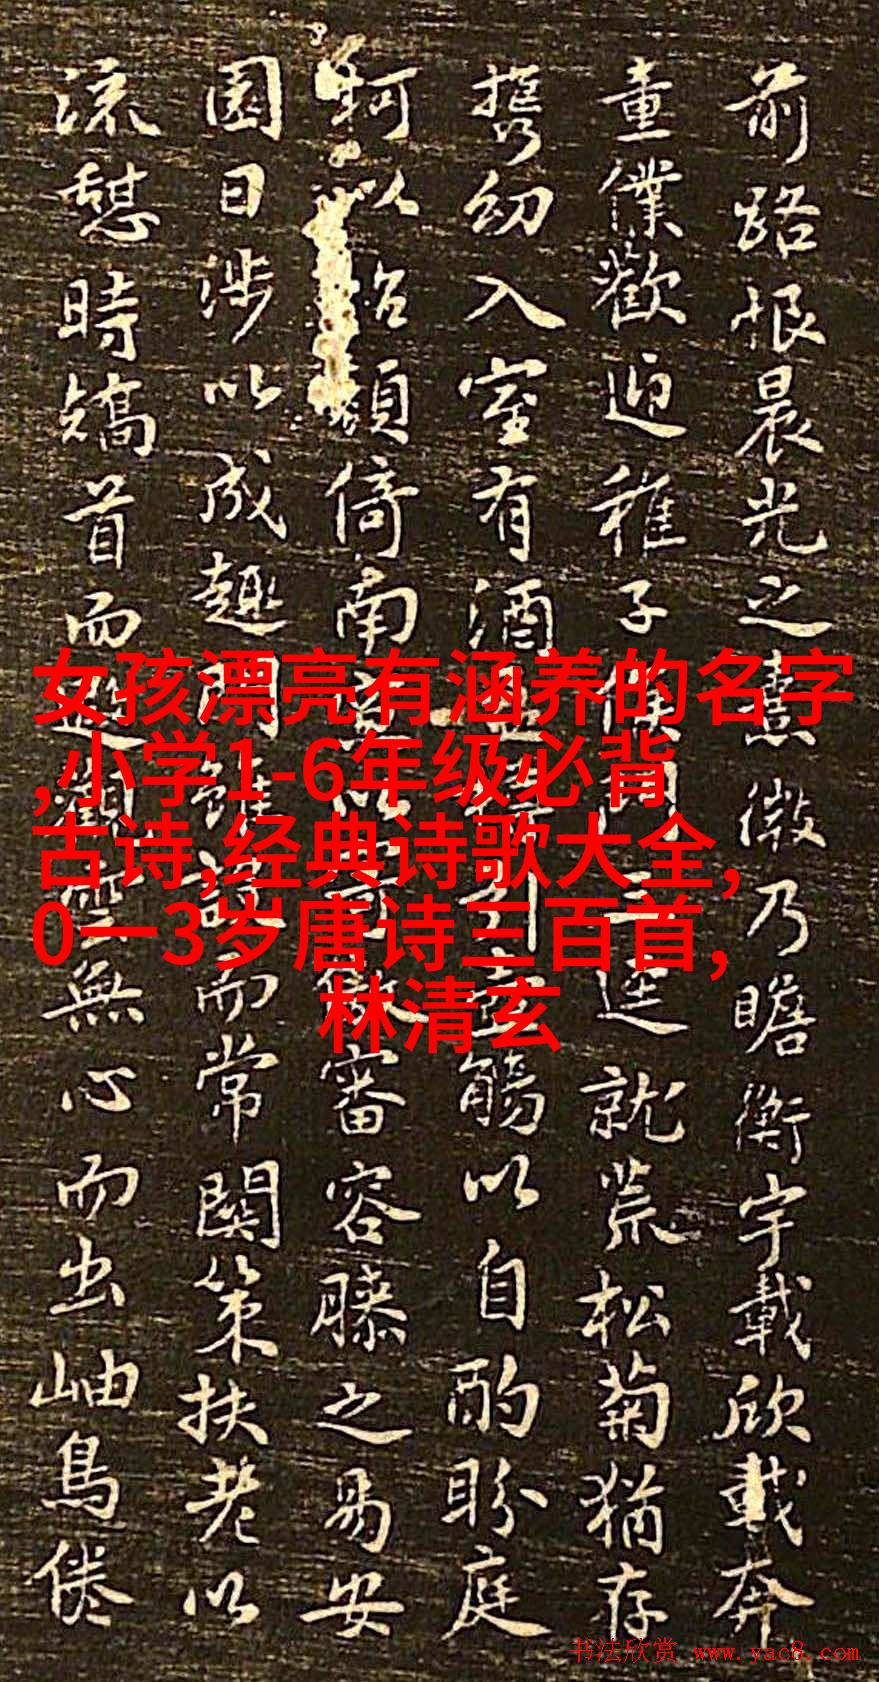 前路恨晨光之熹微乃瞻衡宇載欣載奔
童僕歡迎稚子候門三逕就荒松菊猶存
携幼入室有酒盈樽引壺觴以自酌盼庭
柯以怡顏倚南窓以寄傲審容膝之易安
園日涉以成趣門雖設而常関策扶老以
流憩時矯首而遐觀雲無心而出岫鳥倦
女孩漂亮有涵养的名字
,小学1-6年级必背
古诗,经典诗歌大全,
0一3岁唐诗三百首,
林清玄
书法欣赏 www.yac8.com